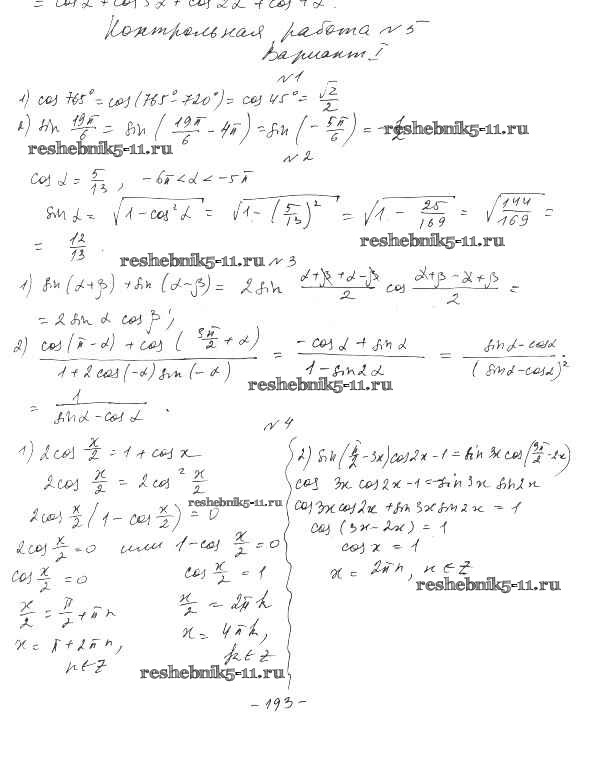 = cosα + cos3α + cos2α + cos4α.
Контрольная работа №5
Вариант I
№1
1) cos 765° = cos(765° − 720°) = cos 45° = √2/2
2) sin 19π/6 = sin (19π/6 − 4π) = sin (−5π/6) = −1/2
reshebnik5-11.ru
reshebnik5-11.ru
№2
cos α = 5/13, −6π < α < −5π
sin α = √(1 − cos²α) = √(1 − (5/13)²) = √(1 − 25/169) = √(144/169) =
reshebnik5-11.ru
= 12/13.
reshebnik5-11.ru
№3
1) sin(α+β) + sin(α−β) = 2 sin (α+β+α−β)/2 cos (α+β−α+β)/2 =
= 2 sin α cos β;
2) (cos(π−α) + cos(3π/2 + α))/(1 + 2cos(−α) sin(−α)) = (−cosα + sinα)/(1 − sin2α) = (sinα − cosα)/(sinα − cosα)² =
reshebnik5-11.ru
= 1/(sinα − cosα).
№4
1) 2cos x/2 = 1 + cos x
2cos x/2 = 2cos² x/2
reshebnik5-11.ru
2cos x/2 (1 − cos x/2) = 0
2cos x/2 = 0 или 1 − cos x/2 = 0
cos x/2 = 0 cos x/2 = 1
x/2 = π/2 + πn x/2 = 2πk
x = π + 2πn, x = 4πk,
n∈Z k∈Z
2) sin(π/2 − 3x) cos2x − 1 = sin 3x cos(3π/2 − 2x)
cos 3x cos 2x − 1 = −sin 3x sin 2x
cos3x cos2x + sin 3x sin 2x = 1
cos (3x − 2x) = 1
cos x = 1
x = 2πn, n∈Z
reshebnik5-11.ru
reshebnik5-11.ru
- 193 -